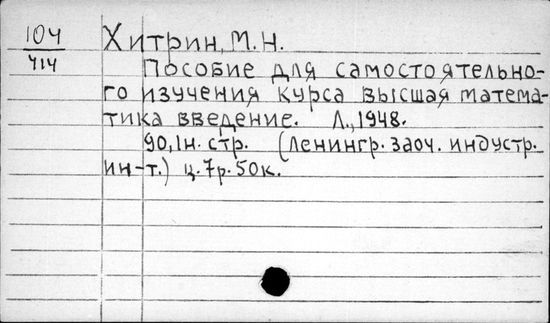 104 Хитрин, М.Н.
414 Пособие для самостоятельно-
го изучения курса высшая матема-
тика введение. Л., 1948.
90,1н. стр. (Ленингр. заоч. индустр.
ин-т.) ц. 7р. 50к.